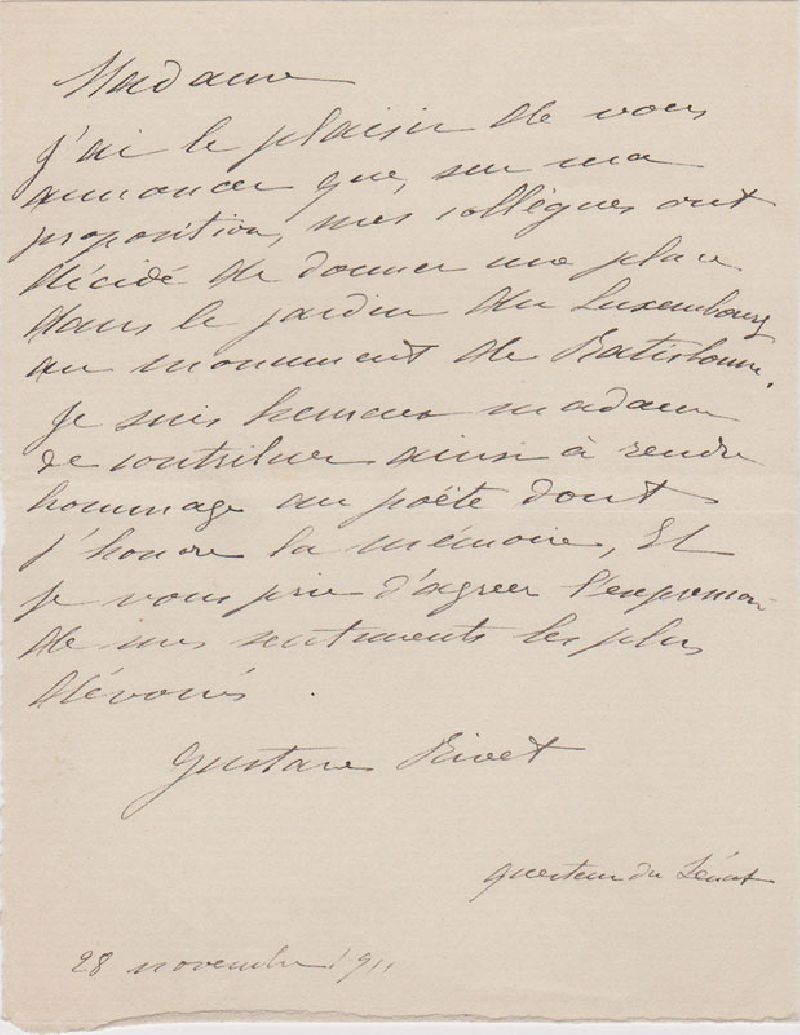 Madame
J'ai le plaisir de vous
annoncer que, sur ma
proposition, mes collègues ont
décidé de donner une place
dans le jardin du Luxembourg
au monument de Ratisbonne.
Je suis heureux madame
de contribuer ainsi à rendre
hommage au poëte dont
j'honore la mémoire, Et
je vous prie d'agréer l'expression
de mes sentiments les plus
dévoués.
Gustave Rivet
questeur du Sénat
28 novembre 1911